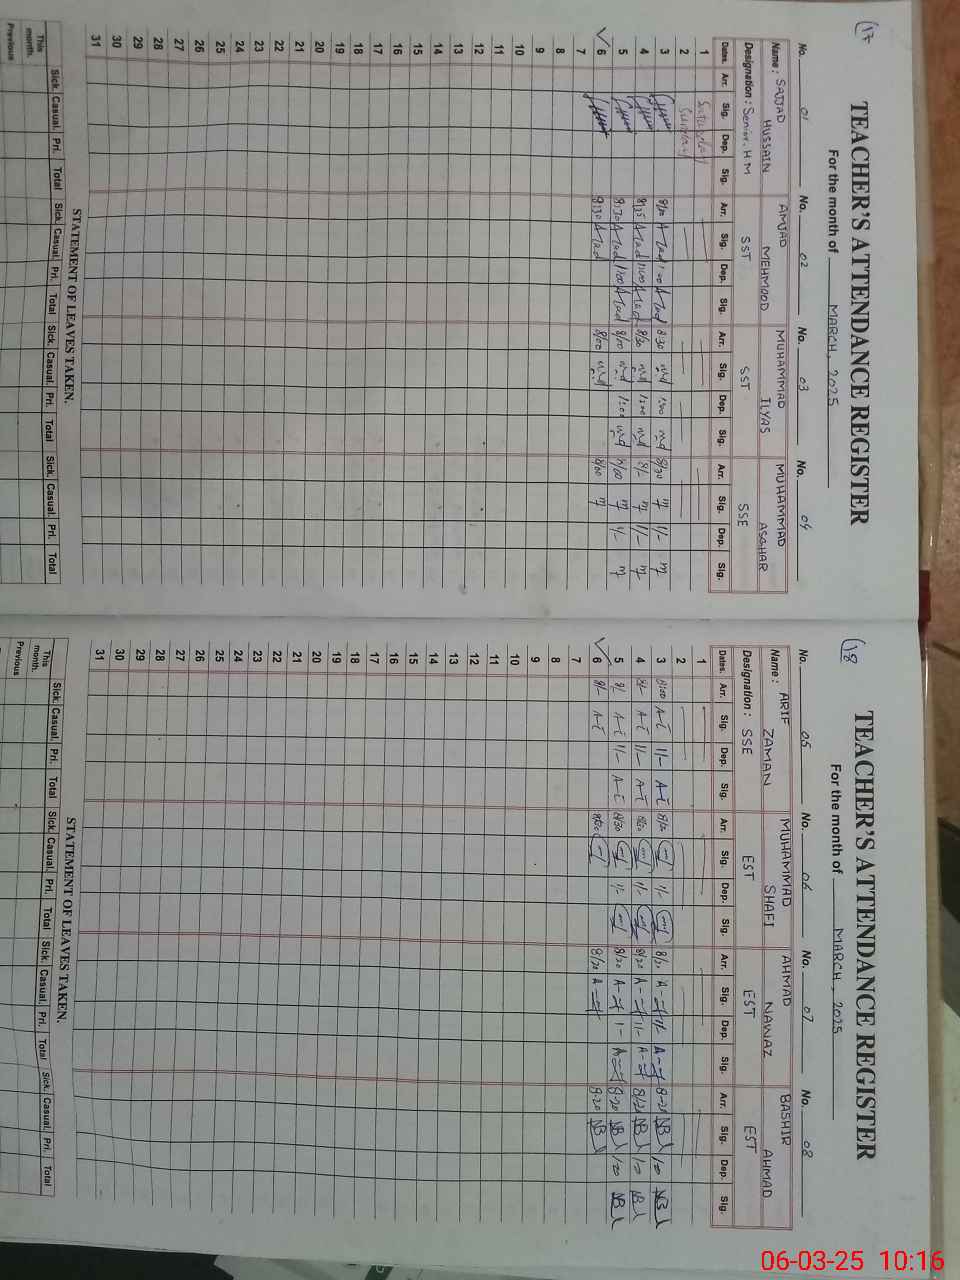 (17
TEACHER'S ATTENDANCE REGISTER
For the month of MARCH, 2025
No. 01 No. 02 No. 03 No. 04
Name : SAJJAD HUSSAIN AMJAD MEHMOOD MUHAMMAD ILYAS MUHAMMAD ASGHAR
Designation : Senior. H M SST SST SSE
Dates. Arr. Sig. Dep. Sig. Arr. Sig. Dep. Sig. Arr. Sig. Dep. Sig. Arr. Sig. Dep. Sig.
1 Saturday
2 Sunday
3 8/30 1:00 8:30 1:00 8/30 1/-
4 8/35 1:00 8/30 1:00 8/- 1/-
5 8:30 1:00 8/00 1:00 8/00 1/-
6 8:30 8/00 8/00
7
8
9
10
11
12
13
14
15
16
17
18
19
20
21
22
23
24
25
26
27
28
29
30
31
STATEMENT OF LEAVES TAKEN.
Sick. Casual. Pri. Total Sick. Casual. Pri. Total Sick. Casual. Pri. Total Sick. Casual. Pri. Total
This month.
Previous
(18
TEACHER'S ATTENDANCE REGISTER
For the month of MARCH, 2025
No. 05 No. 06 No. 07 No. 08
Name : ARIF ZAMAN MUHAMMAD SHAFI AHMAD NAWAZ BASHIR AHMAD
Designation : SSE EST EST EST
Dates. Arr. Sig. Dep. Sig. Arr. Sig. Dep. Sig. Arr. Sig. Dep. Sig. Arr. Sig. Dep. Sig.
1
2
3 8:00 1/- 8/30 1/- 8/20 1/- 8-20
4 8/- 1/- 8/30 1/- 8/20 1/- 8/20
5 8/- 1/- 8/30 1/- 8/20 1- 8-20
6 8/- 8/30 8/20 8-20
7
8
9
10
11
12
13
14
15
16
17
18
19
20
21
22
23
24
25
26
27
28
29
30
31
STATEMENT OF LEAVES TAKEN.
Sick. Casual. Pri. Total Sick. Casual. Pri. Total Sick. Casual. Pri. Total Sick. Casual. Pri. Total
This month.
Previous
06-03-25 10:16